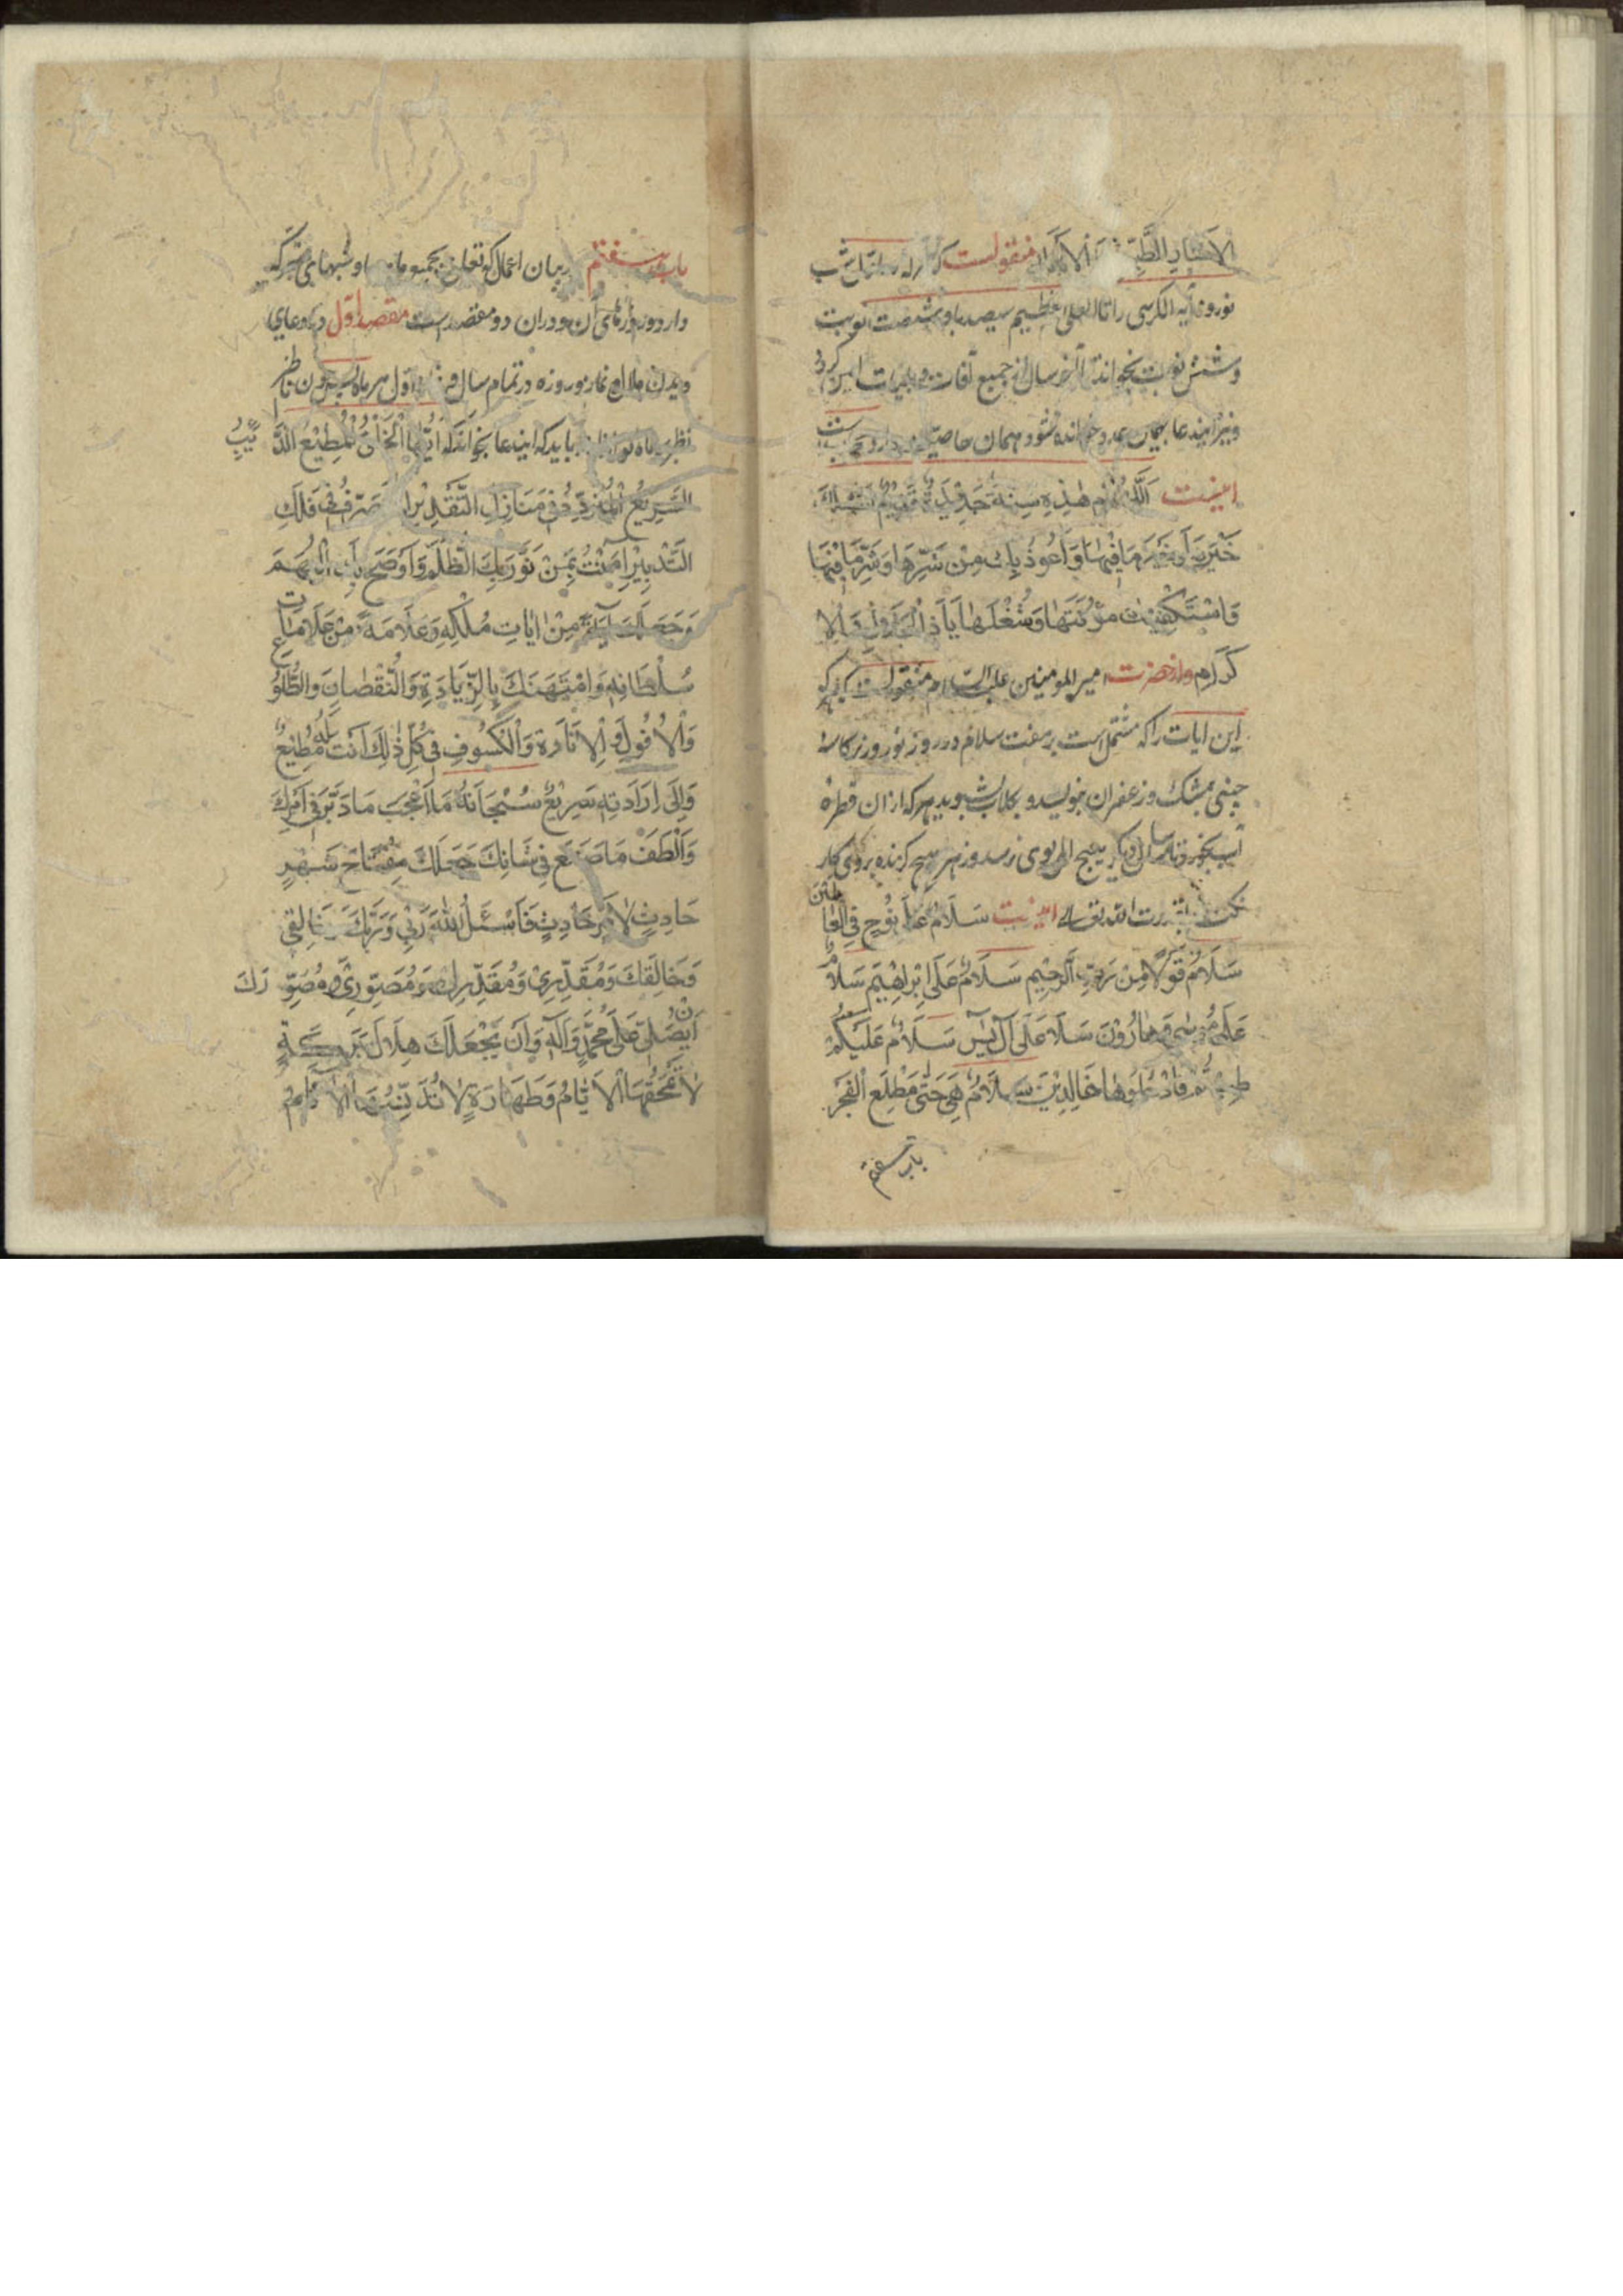 منقولست که هر که در شب
نوروز آیة الکرسی را تا العلی العظیم سیصد بار و شصت نوبت
و شش نوبت بخواند تا آخر سال از جمیع آفات و بلیات ایمن گردد
و نیز ایندعا بهمان عدد خوانده شود همان خاصیت دارد و مجربست
اینست اَللّهُمَّ هٰذِهِ سِنَةٌ جَدِيدَةٌ قَدِيمٌ اَسْئَلُكَ
خَيْرَهٰا وَخَيْرَ مٰا فِيهٰا وَاَعُوذُ بِكَ مِنْ شَرِّهٰا وَشَرِّ مٰا فِيْهٰا
وَاسْتَكْفِيْكَ مَؤُنَتَهٰا وَشُغْلَهٰا يٰا ذَا الْجَلٰالِ وَالْاِ
كْرٰامِ و از حضرت امیر المومنین علیه السلام منقولست که هر که
این ایات را که مشتمل است بر هفت سلام در روز نوروز بر کاسه
چینی بمشک و زعفران بنویسد و بکلاب بشوید هر که از ان قطره
بخورد تا سال دیگر هیچ المی بوی نرسد و زهر هیچ گزنده بروی کار
نکند بقدرت الله تعالی اینست سَلٰامٌ عَلٰى نُوْحٍ فِي الْعٰا لَمِيْنَ
سَلٰامٌ قَوْلًا مِنْ رَبٍّ الرَّحِيْمِ سَلٰامٌ عَلٰى اِبْرٰاهِيْمَ سَلٰامٌ
عَلٰى مُوْسٰى وَهٰارُوْنَ سَلٰامٌ عَلٰى آلِ يٰسٓ سَلٰامٌ عَلَيْكُمْ
طِبْتُمْ فَادْخُلُوهٰا خٰالِدِيْنَ سَلٰامٌ هِيَ حَتّٰى مَطْلَعِ الْفَجْرِ
باب هفتم
باب هفتم در بیان اعمال که تعلق بجمیع ماه‌ها و شبهای متبرکه
دارد و روزهای آن و دران دو مقصد است مقصد اول در دعای
دیدن هلال و نماز و روزه در تمام سال و اول هر ماه چون ناظر
نظر بماه نو باید که ایندعا بخواند که اَيُّهَا الْخَلْقُ الْمُطِيْعُ الدّٰئِبُ
السَّرِيْعُ الْمُتَرَدِّدُ فِيْ مَنٰازِلِ التَّقْدِيْرِ الْمُتَصَرِّفُ فِيْ فَلَكِ
التَّدْبِيْرِ اٰمَنْتُ بِمَنْ نَوَّرَ بِكَ الظُّلَمَ وَاَوْضَحَ بِكَ الْبُهَمَ
وَجَعَلَكَ آيَةً مِنْ اٰيٰاتِ مُلْكِهِ وَعَلٰامَةً مِنْ عَلٰامٰاتِ
سُلْطٰانِهِ وَامْتَهَنَكَ بِالزِّيٰادَةِ وَالنُّقْصٰانِ وَالطُّلُوْعِ
وَالْاُفُولِ وَالْاِنٰارَةِ وَالْكُسُوفِ فِيْ كُلِّ ذٰلِكَ اَنْتَ لَهُ مُطِيْعٌ
وَاِلٰى اِرٰادَتِهِ سَرِيْعٌ سُبْحٰانَهُ مٰا اَعْجَبَ مٰا دَبَّرَ فِيْ اَمْرِكَ
وَاَلْطَفَ مٰا صَنَعَ فِيْ شَانِكَ جَعَلَكَ مِفْتٰاحَ شَهْرٍ
حٰادِثٍ لِاَمْرٍ حٰادِثٍ فَاَسْئَلُ اللّٰهَ رَبِّيْ وَرَبَّكَ وَخٰالِقِيْ
وَخٰالِقَكَ وَمُقَدِّرِيْ وَمُقَدِّرَكَ وَمُصَوِّرِيْ وَمُصَوِّرَكَ
اَنْ يُصَلِّيَ عَلٰى مُحَمَّدٍ وَآلِهِ وَاَنْ يَجْعَلَكَ هِلٰالَ بَرَكَةٍ
لٰا تَمْحَقُهَا الْاَيّٰامُ وَطَهٰارَةٍ لٰا تُدَنِّسُهَا الْاٰثٰامُ